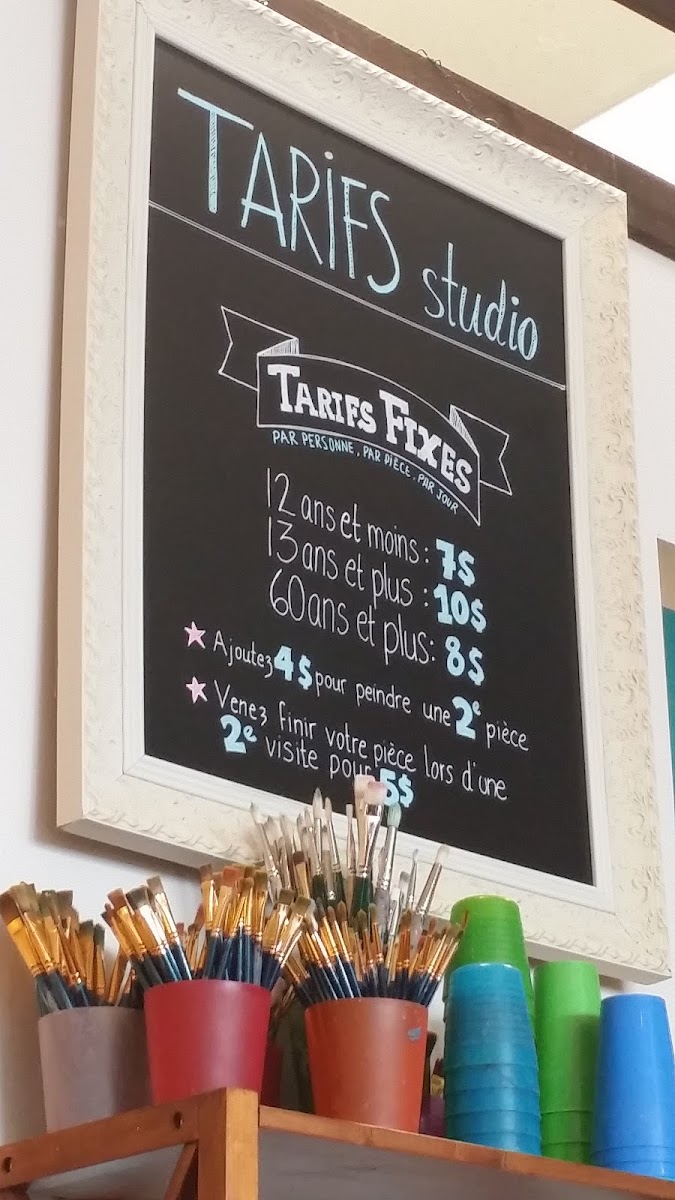 TARIFS studio
TARIFS FIXES
PAR PERSONNE, PAR PIÈCE, PAR JOUR
12 ans et moins: 7$
13 ans et plus: 10$
60 ans et plus: 8$
Ajoutez 4$ pour peindre une 2e pièce
Venez finir votre pièce lors d'une
2e visite pour 5$